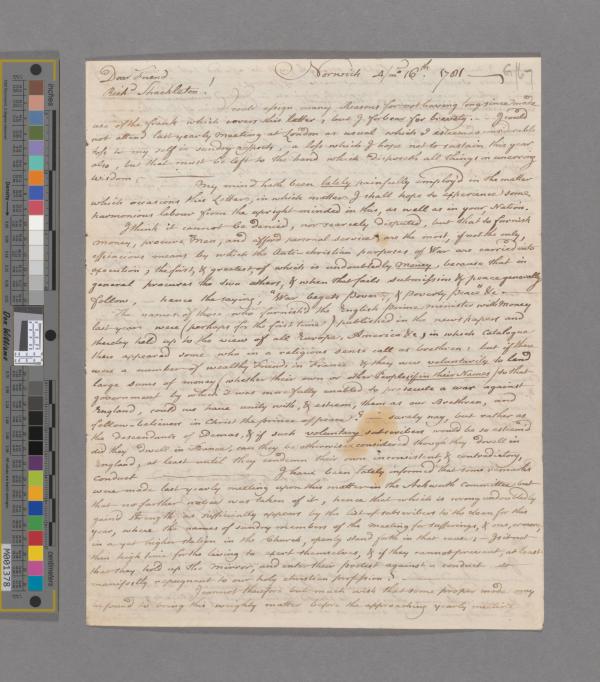 Dear Friend Norwich 4/mo 16th. 1781
Richd Shackleton.!
I could assign many Reasons for not having long since made
use of the frank which covers this letter, but I forbear for brevity. — I could
not attend last yearly meeting at London as usual which I esteem a considerable
loss to my self in sundry respects, a loss which I hope not to sustain this year
also, but that must be left to the hand which disposeth all things in unerring
wisdom.
My mind hath been lately painfully employ'd in the matter
which occasions this Letter, in which matter I shall hope to experience some
harmonious labour from the upright minded in this, as well as in your Nation.
I think it cannot be denied, nor scarcely disputed, but that to furnish
money, procure Men, and afford personal service are the most, if not the only,
efficacious means by which the Anti-christian purposes of War are carried into
execution; the first, & greatest, of which is undoubtedly money, because that in
general procures the two others, & when that fails submission & peace generally
follow, hence the saying, "War begets Poverty, & poverty peace" &c.
The names of those who furnished the English prime minister with Money
last year were (perhaps for the first time) published in the news papers and
thereby held up to the view of all Europe, America &c; in which Catalogue
there appeared some who in a religious sense call us brethren: but if there
were a number of wealthy Friends in France & they were voluntarily to lend
large sums of money, whether their own or other Peoples if in their Names, to that
government by which it was more fully enabled to prosecute a war against
England, could we have unity with, & esteem, them as our Brethren, and
fellow-believers in Christ the prince of peace? I surely nay, but rather as
the descendants of Demas, & if such voluntary subscribers would be so esteemed
did they dwell in France, can they be otherwise considered though they dwell in
England, at least until they condemn their own inconsistent & contradictory,
conduct I have been lately informed that some remarks
were made last yearly meeting upon this matter in the Ackworth Committee but
that no farther notice was taken of it, hence that which is wrong undoubtedly
gains strength, as sufficiently appears by the list of subscribers to the loan for this
year, where the names of sundry members of the meeting for sufferings, & one, or more,
in a yet higher station in the Church, openly stand forth in that cause; — Is it not
then high time for the living to exert themselves, & if they cannot prevent, at least
that they hold up the mirror, and enter their protest against a conduct so
manifestly repugnant to our holy christian profession?
I cannot therefore but much wish that some proper mode may
be found to bring this weighty matter before the approaching yearly meeting
inches
centimeters
Don Williams
M001378